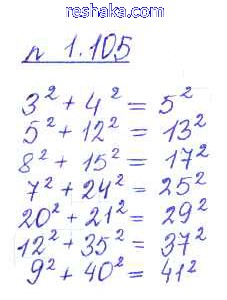 reshaka.com
n 1.105
3² + 4² = 5²
5² + 12² = 13²
8² + 15² = 17²
7² + 24² = 25²
20² + 21² = 29²
12² + 35² = 37²
9² + 40² = 41²